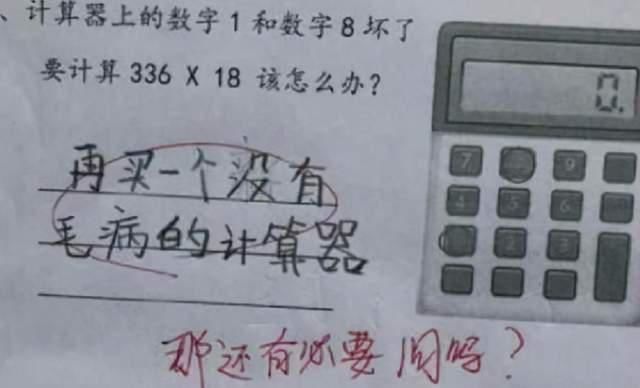 、计算器上的数字1和数字8坏了
要计算336 X 18 该怎么办?
0.
再买一个没有
毛病的计算器
7 9
4 5 6
2 3
那还有必要问吗?